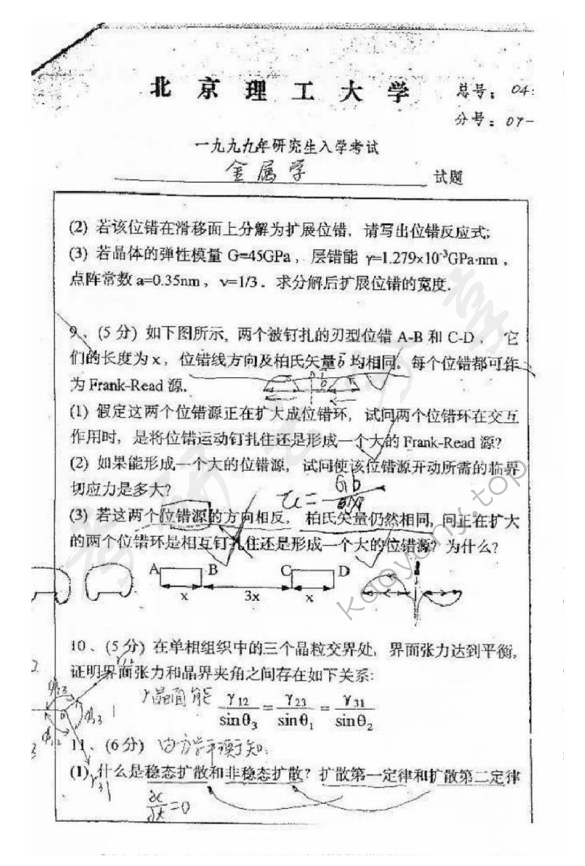 北京理工大学
总号：04:
分号：07-
一九九九年研究生入学考试
金属学 试题
(2) 若该位错在滑移面上分解为扩展位错，请写出位错反应式;
(3) 若晶体的弹性模量 G=45GPa，层错能 γ=1.279×10⁻³GPa·nm，
点阵常数 a=0.35nm，ν=1/3．求分解后扩展位错的宽度.
9、(5 分) 如下图所示, 两个被钉扎的刃型位错 A-B 和 C-D， 它
们的长度为 x，位错线方向及柏氏矢量b̄ 均相同。每个位错都可作
为 Frank-Read 源.
(1) 假定这两个位错源正在扩大成位错环，试问两个位错环在交互
作用时，是将位错运动钉扎住还是形成一个大的 Frank-Read 源?
(2) 如果能形成一个大的位错源，试问使该位错源开动所需的临界
切应力是多大?
(3) 若这两个位错源的方向相反，柏氏矢量仍然相同, 问正在扩大
的两个位错环是相互钉扎住还是形成一个大的位错源? 为什么?
A B C D
x 3x x
10、(5分) 在单相组织中的三个晶粒交界处，界面张力达到平衡,
证明界面张力和晶界夹角之间存在如下关系:
γ12/sinθ3 = γ23/sinθ1 = γ31/sinθ2
11、(6分)
(1) 什么是稳态扩散和非稳态扩散? 扩散第一定律和扩散第二定律
kaoyany.top